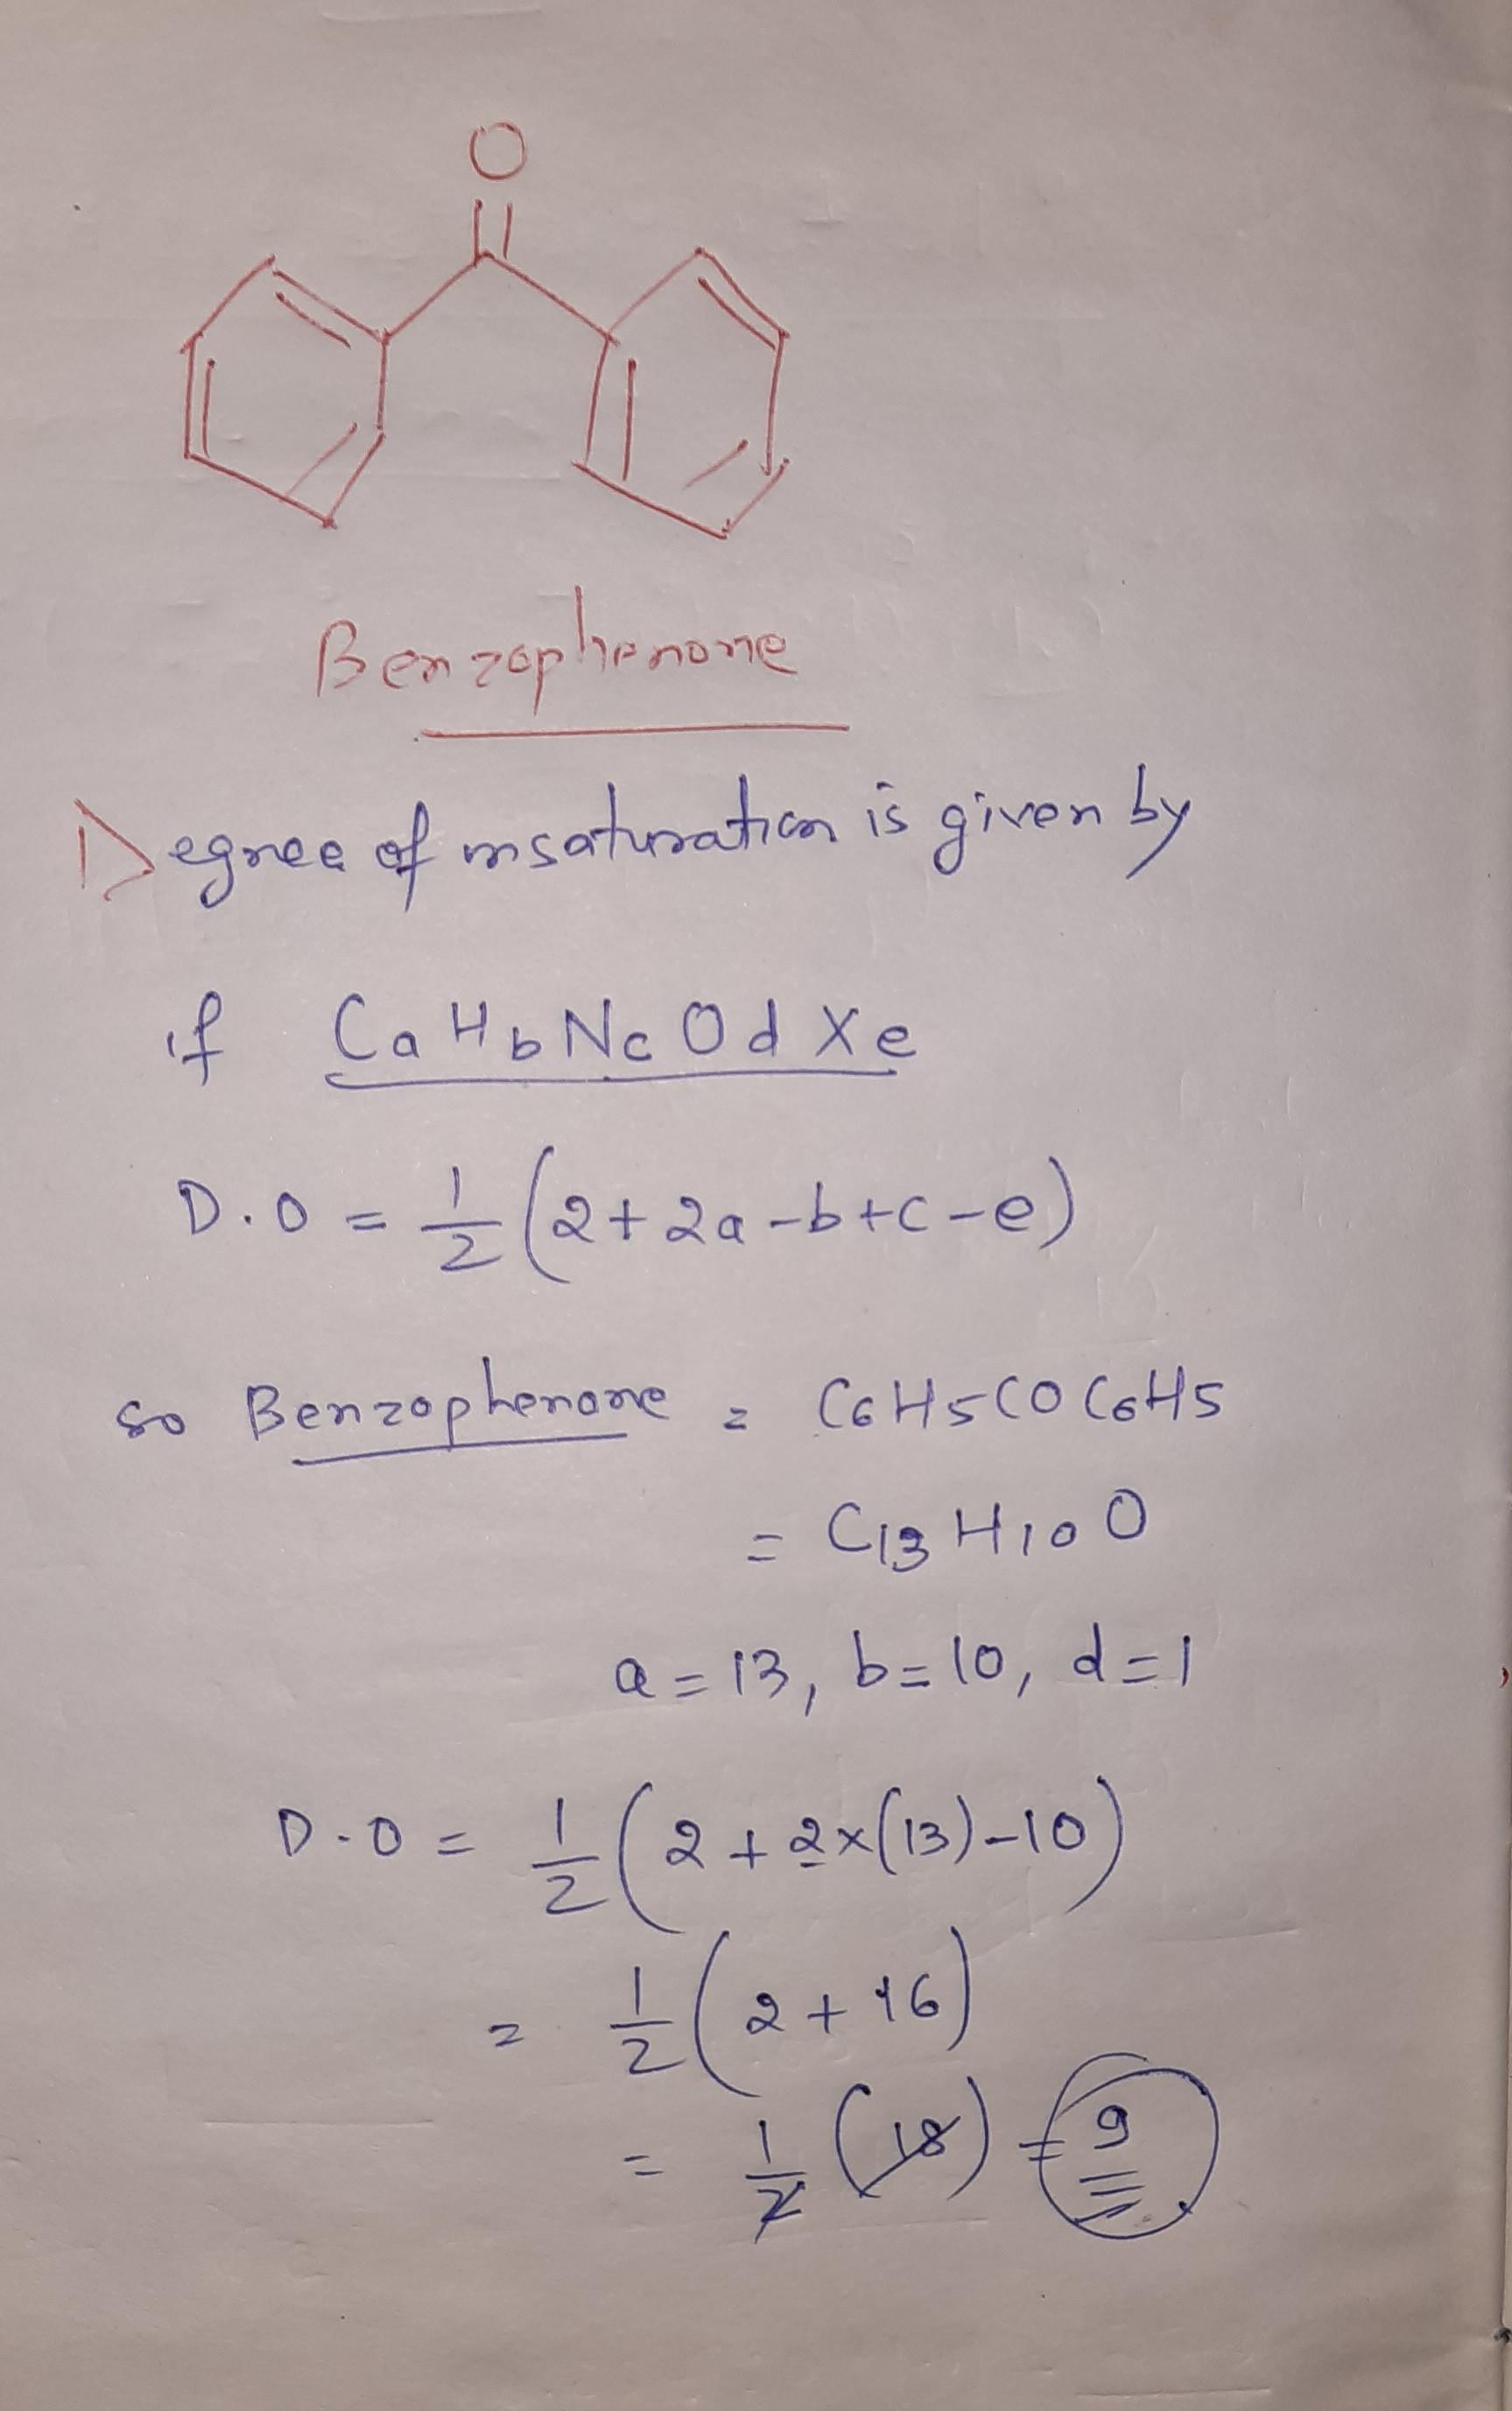 O
Benzophenone
Degree of unsaturation is given by
if CaHbNcOdXe
D.O = 1/2 (2+2a-b+c-e)
so Benzophenone = C6H5COC6H5
= C13H10O
a=13, b=10, d=1
D.O = 1/2 (2+2x(13)-10)
= 1/2 (2+16)
= 1/2 (18) = 9